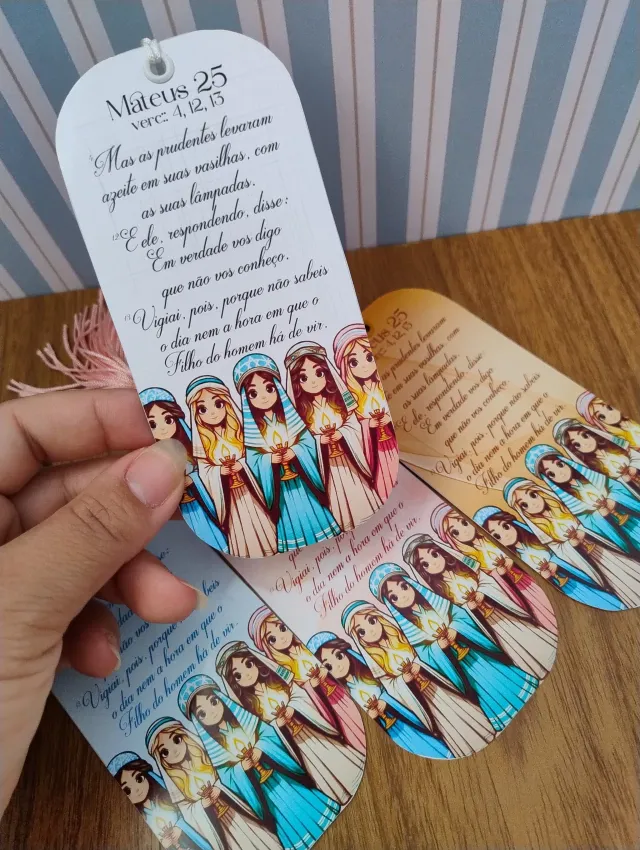 Mateus 25
verc: 4, 12, 13
4 Mas as prudentes levaram
azeite em suas vasilhas, com
as suas lâmpadas.
12 E ele, respondendo, disse:
Em verdade vos digo
que não vos conheço.
13 Vigiai, pois, porque não sabeis
o dia nem a hora em que o
Filho do homem há de vir.
25
4, 12, 13
prudentes levaram
em suas vasilhas, com
as suas lâmpadas.
E ele, respondendo, disse:
Em verdade vos digo
que não vos conheço.
Vigiai, pois, porque não sabeis
o dia nem a hora em que o
Filho do homem há de vir.
Vigiai, pois, porque não sabeis
o dia nem a hora em que o
Filho do homem há de vir.
Vigiai, pois, porque não sabeis
o dia nem a hora em que o
Filho do homem há de vir.